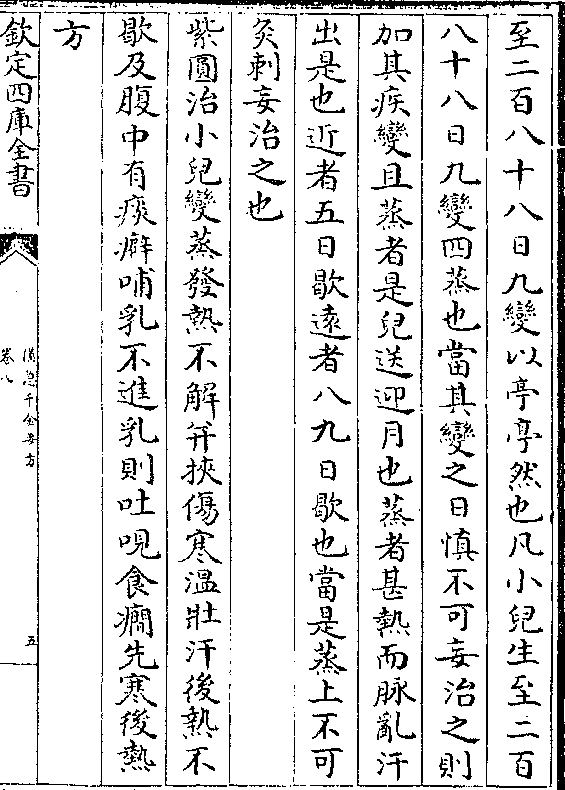 至二百八十八日九變以亭亭然也凡小兒生至二百
八十八日九變四蒸也當其變之日慎不可妄治之則
加其疾變且蒸者是兒送迎月也蒸者甚熱而脉亂汗
出是也近者五日歇遠者八九日歇也當是蒸上不可
灸刺妄治之也
紫圓治小兒變蒸發熱不解并挾傷寒温壯汗後熱不
歇及腹中有痰癖哺乳不進乳則吐哯食癇先寒後熱
方
欽定四庫全書
備急千金要方
卷八
五